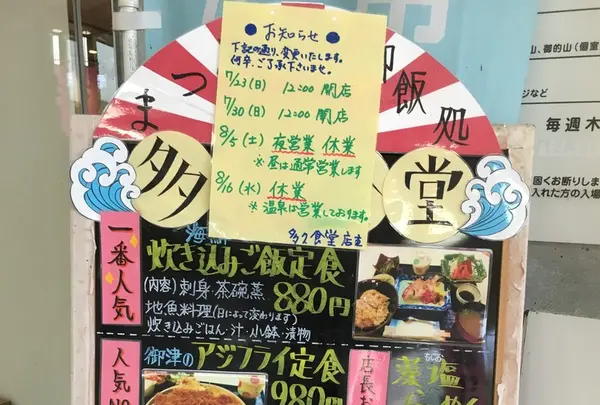 お知らせ
下記の通り、変更いたします。
何卒、ご了承下さいませ。
7/23(日) 12:00 開店
7/30(日) 12:00 開店
8/5(土) 夜営業 休業
※昼は通常営業します
8/16(水) 休業
※温泉は営業しております。
多久食堂 店主
まつ
御飯処
多
堂
一番人気
海鮮
炊き込みご飯定食
(内容)刺身・茶碗蒸
880円
地魚料理(日によって変わります)
炊き込みごはん・汁・小鉢・漬物
人気NO
御津のアジフライ定食
980円
店長お
藻塩
山、御的山(個室
ジなど
毎週木
固くお断りしま
入れた方の入場